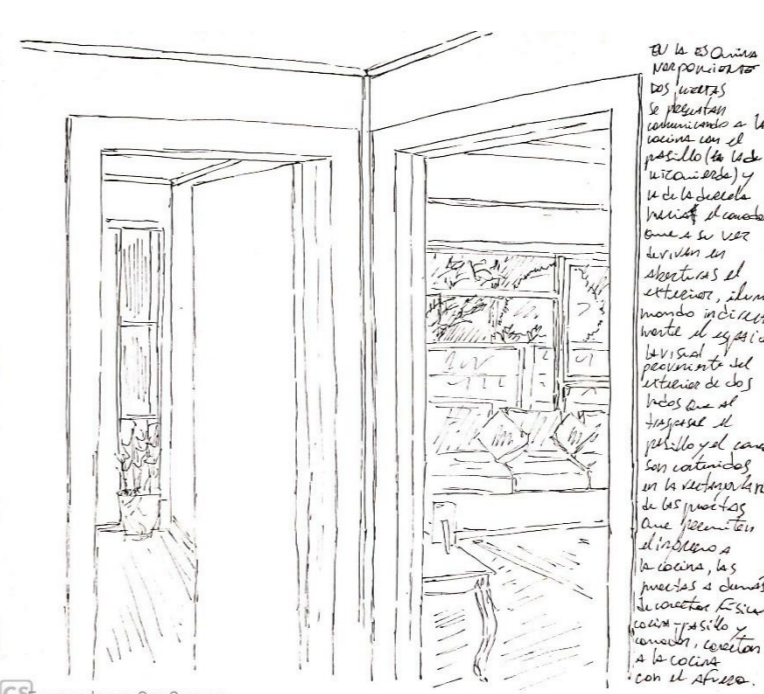 EN LA ESQUINA
NORPONIENTE
DOS PUERTAS
se presentan
comunicando a la
cocina con el
pasillo (la de la
izquierda) y
la de la derecha
hacia el comedor
que a su vez
derivan en
aberturas al
exterior, ilumi
nando indirecta
mente el espacio
la visual
proveniente del
exterior de dos
lados que al
traspasar el
pasillo y el
son contenidas
en la
de las puertas
que permiten
el ingreso a
la cocina, las
puertas a demás
de conectar física
cocina-pasillo y
comedor, conectan
a la cocina
con el afuera.
CS